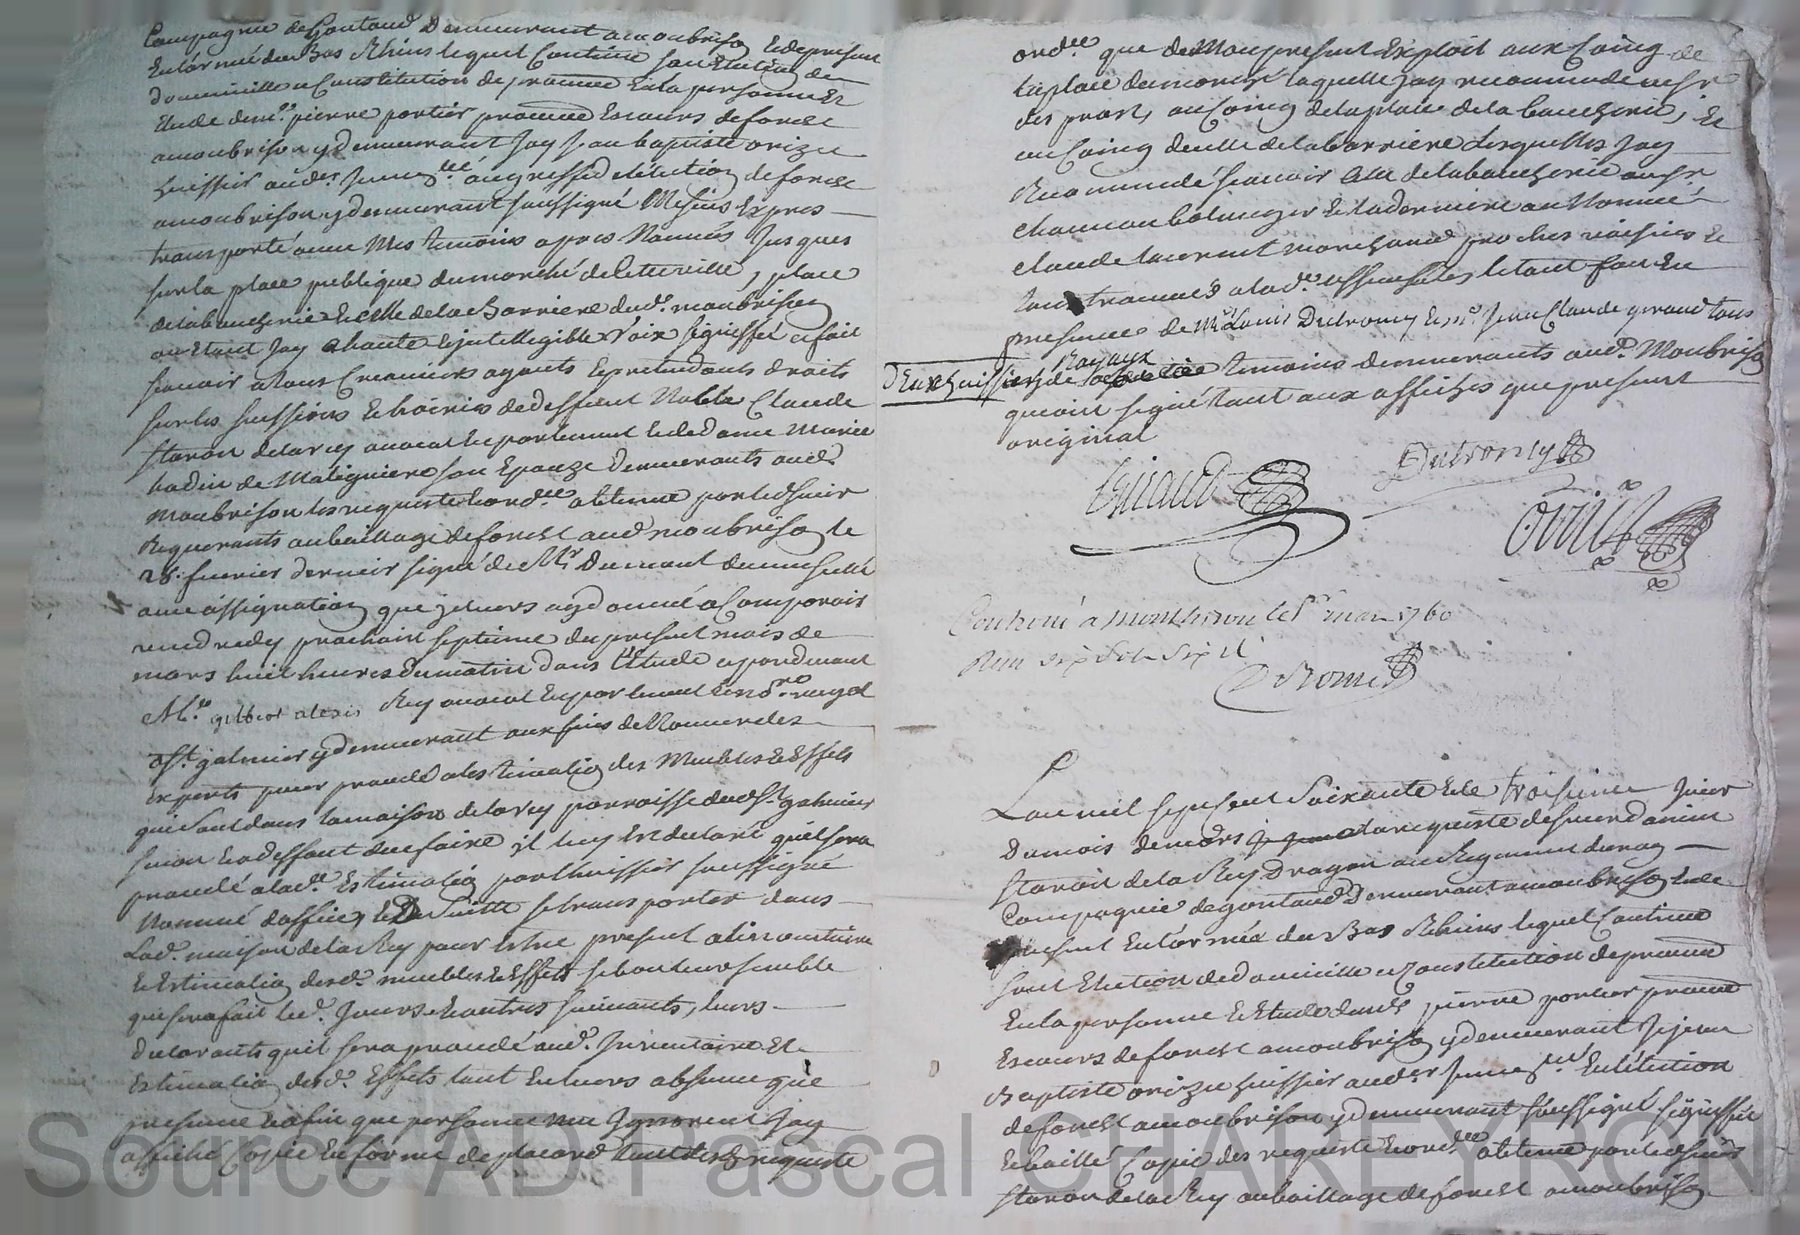 Compagnie de Gontaud Demeurant a monbrison Et de present
En larmée du Bas Rhins lequel Continue son Election de
domicille et Constitution de procureur En la personne Et
Etude de me. pierre portier procureur Es cours de forest
a monbrison y demeurant Jay Jean baptiste orizet
huissier audier Jmmlé au greffe d'election de forest
a monbrison y demeurant soussigné Me suis Expres
transporté avec Mes temoins apres Nommés Jusques
sur la place publique du marché de cette ville, place
de la boucherie Et celle de la Barriere dud. monbrison
ou Etant Jay a haute Et jntelligible Voix signiffié et fait
scavoir a tous Creanciers ayants Et pretendants droits
sur les successions Et hoiries de deffunt Noble Claude
staron de larey avocat En parlement Et de dame Marie
hodin de Maligniere son Epouze demeurants aud.
Monbrison les requiste Et ordce. obtenue par led sieur
Requerants au baillage de forest aud monbrison le
28. fevrier dernier signé de Mr Dumont
avec assignation que je leurs ay donné a Comparoir
vendredy prochain septieme du present mois de
mars huit heures du matin dans l'Etude et pardevant
Me. gilbert alexis Rey avocat En parlement
a St. galmier y demeurant aux fins de Nommer des
Experts pour proceder a lestimation des Meubles Et Effets
qui sont dans la maison de larey parroisse dud St. galmier
sinon Et a deffaut de ce faire jl leur Est declaré quil sera
procedé a lade. Estimation par lhuissier soussigné
Nommé d'office, Et De suitte se transporter dans
Lad. maison de la Rey pour Estre present a linventaire
Et Estimation desd. meubles Et Effets si bon leur semble
qui sera fait led. Jours Et autres suivants, leurs
declarants quil sera procedé aud. Jnventaire Et
Estimation desd. Effets tant En leurs absence que
presence Et afin que personne nen Jgnorent Jay
affiché Copie En forme de placard tant desd requiste
ordce que de Mon present Exploit aux Coing de
la place du marché laquelle Jay recommandé au sr
des prost, au Coing de la place de la boucherie, Et
au Coing de celle de la barriere desquelles Jay
Recommandé scavoir Celle de la boucherie au sr.
chaucon boulanger Et la derniere au Nommé
claude laurent marchand proches voisins Et
tous trouvés a lad. affiches, le tout fait En
presence de Me. Louis Dutroncy Et me. Jean Claude giraud tous
Royaux
D'Eux huissiers temoins demeurants aud. Monbrison
qui ont signé tant aux affiches que present
original
Giraud
Dutroncy
Orizet
Controlé à Montbrison le 5e mars 1760
Reçu dix sols six d
DeRomé
L'an mil sept cent Soixante Et le troisieme Jour
Du mois de mars a la requiste de sieur danien
staron de la Rey Dragon au Regiment du roy
Compagnie de gontaud Demeurant a monbrison Et de
present En larmée du Bas Rhins lequel Continue
son Election de domicille et Constitution de procureur
En la personne Et Etude de me pierre portier procureur
Es cours de forest a monbrison y demeurant Je jean
Baptiste orizet huissier audier Jmmlé En l'élection
de forest a monbrison y demeurant soussigné signiffié
Et baillé Copie des requiste Et ordce. obtenue par led sieur
staron de la Rey au baillage de forest a monbrison
Source AD Pascal CHAREYRON